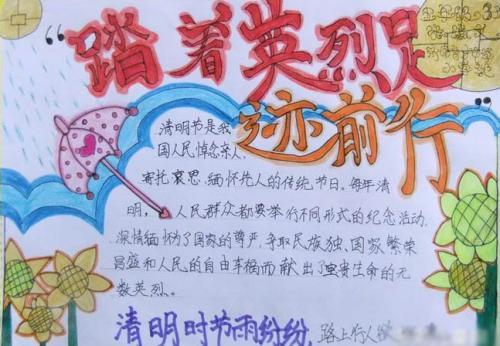 “踏着英烈足
迹前行”
清明节是我
国人民悼念亡人、
寄托哀思、缅怀先人的传统节日。每年清
明，人民群众都要举行不同形式的纪念活动，
深情缅怀为了国家的尊严、争取民族独、国家繁荣
昌盛和人民的自由幸福而献出了宝贵生命的无
数英烈。
清明时节雨纷纷，路上行人欲